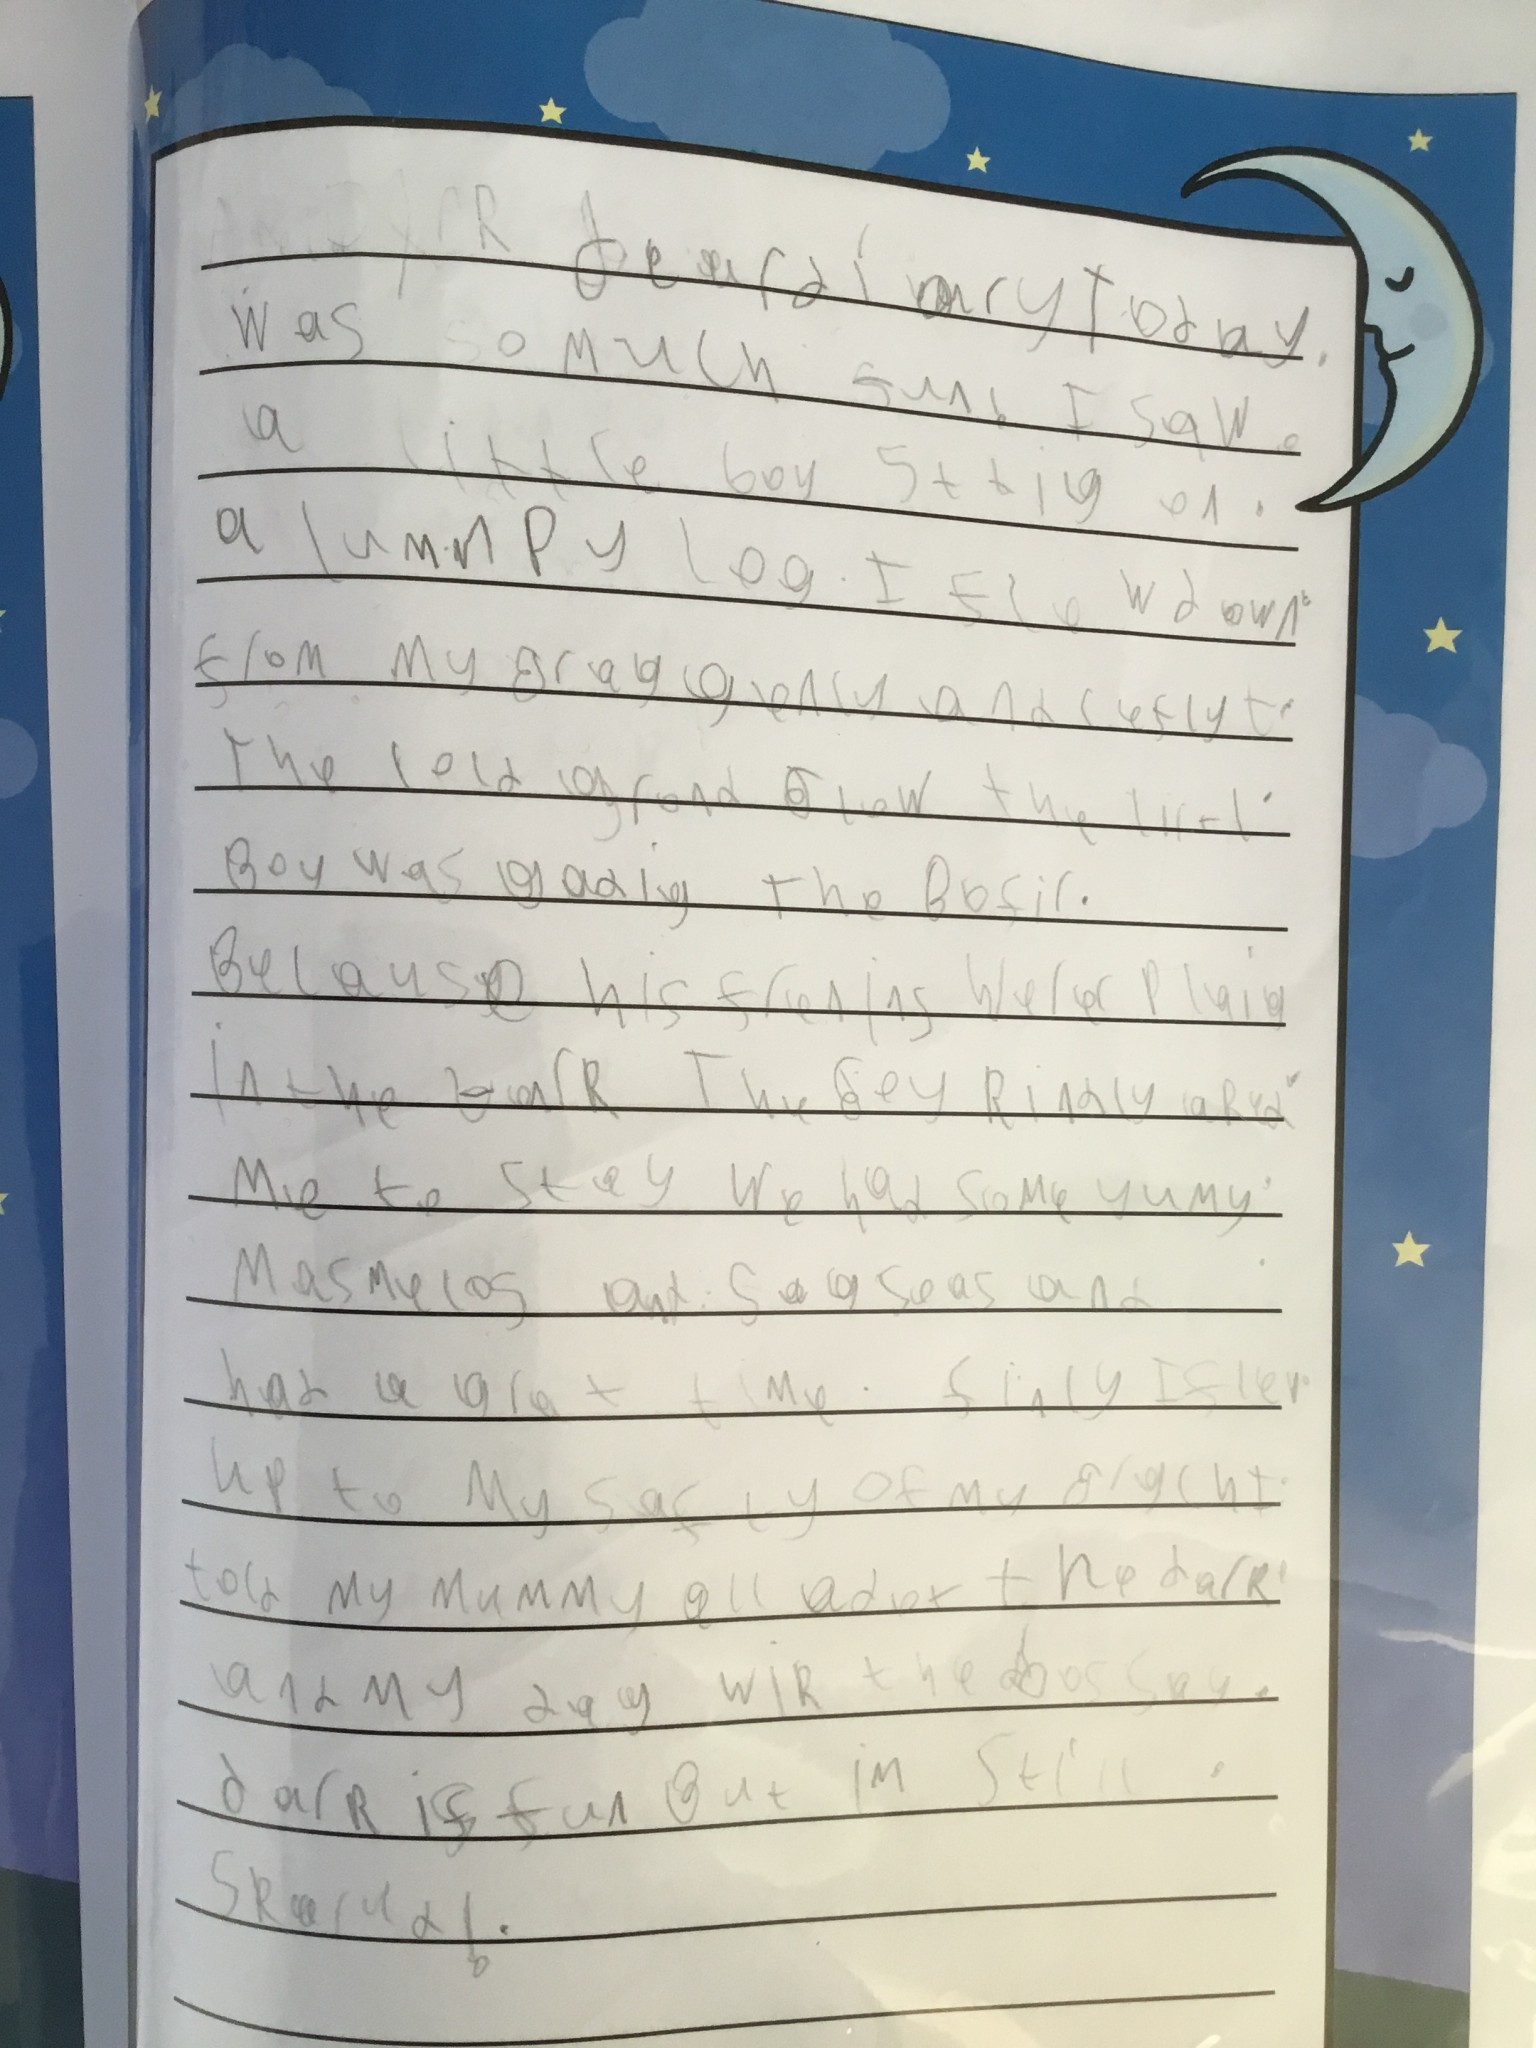 dear diary Today.
was so much fun! I saw
a little boy Sttig on.
a lummpy log. I flew down
from my Brag gently and
The cold ground Glow the
Boy was gazig the Bofir.
Because his frenins Werer Plaig
in the darR The Boy Rindly aRed
Me to stay We had some yumy
Masmelos and Sagseas and
had a grat time. finly I flew
up to My safty Of my
told my Mummy all adot the darR
and MY day WiR the
darR is fun But im Still.